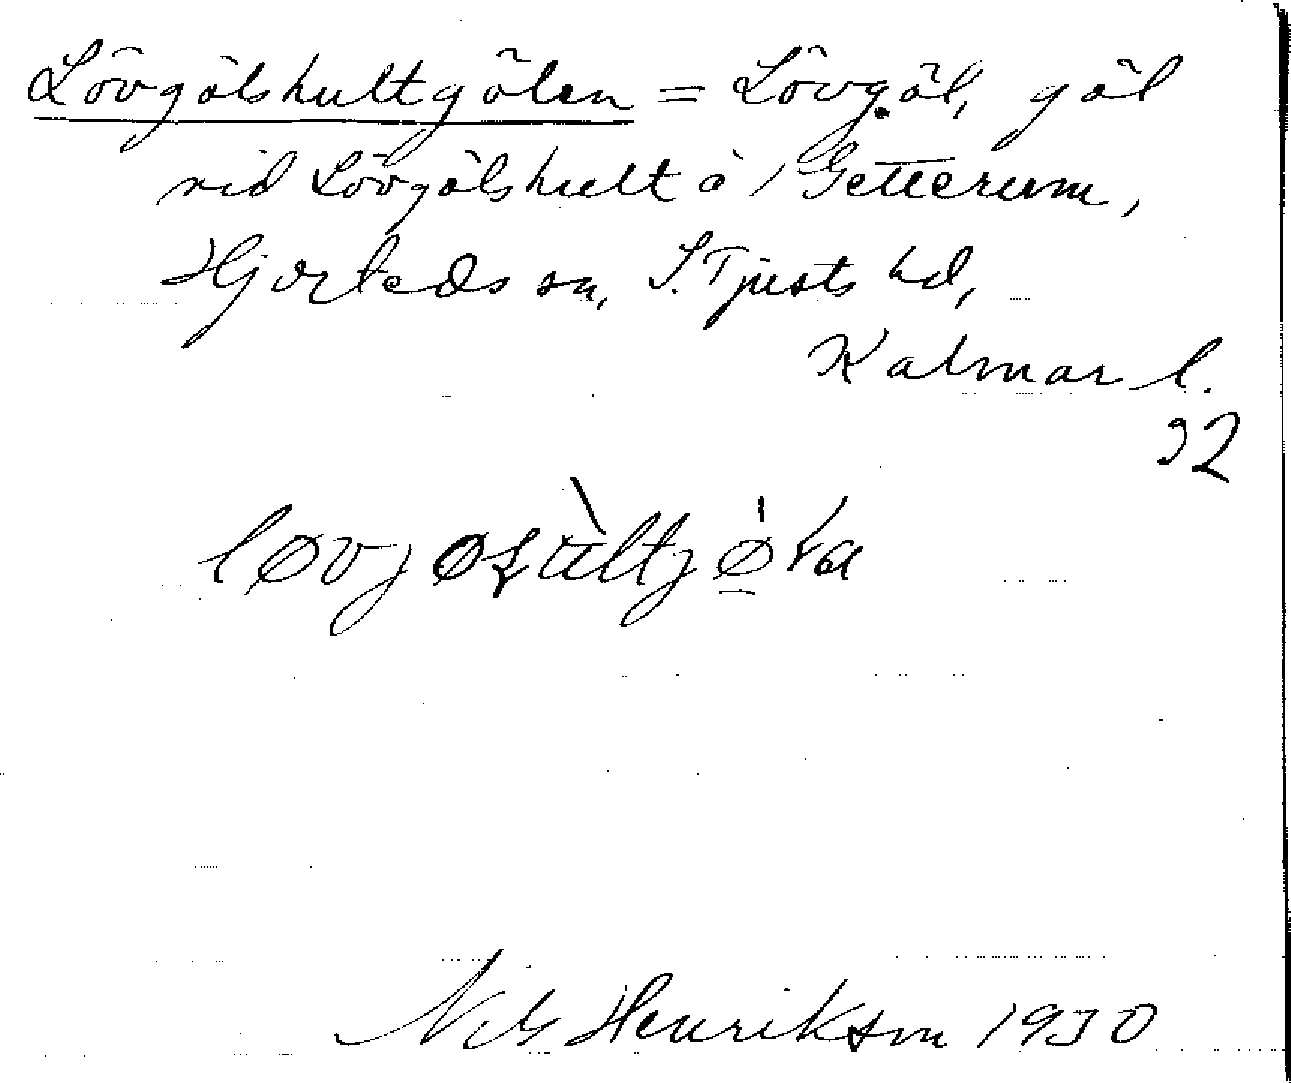 Lövgölshultgölen = Lövgöl, göl
vid Lövgölshult å / Getterum,
Hjorteds sn, S. Tjusts hd,
Kalmar l.
92
Nils Henrikson 1930